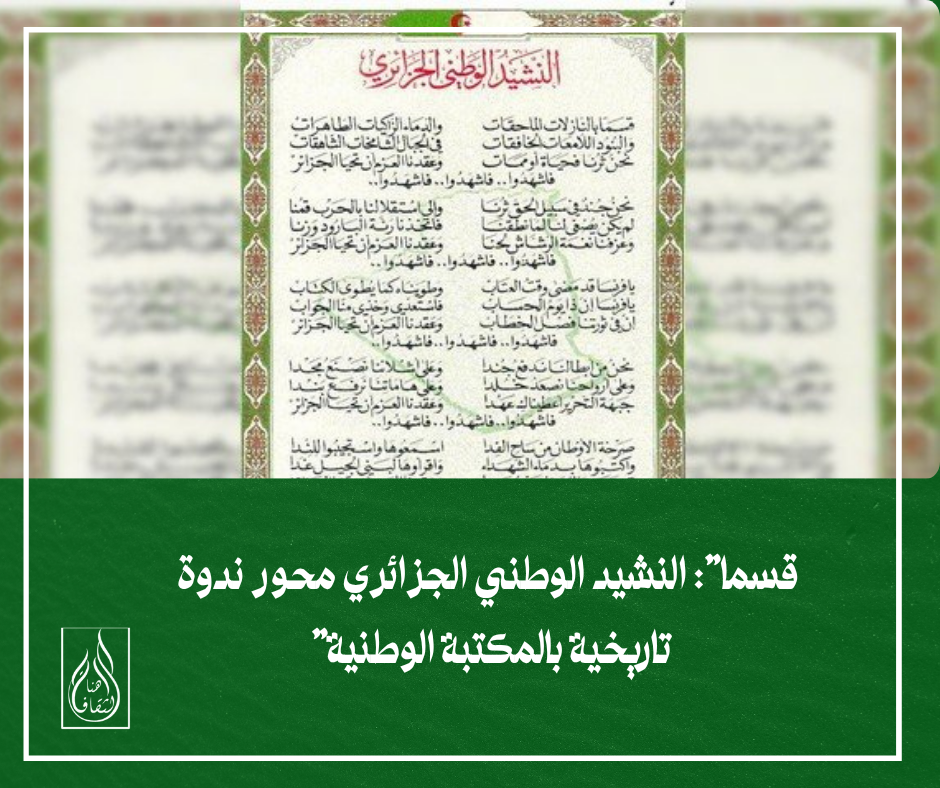 النشيد الوطني الجزائري
قسما بالنازلات الماحقات والدماء الزاكيات الطاهرات
والبنود اللامعات الخافقات في الجبال الشامخات الشاهقات
نحن ثرنا فحياة أو ممات وعقدنا العزم أن تحيا الجزائر
فاشهدوا.. فاشهدوا.. فاشهدوا..
نحن جند في سبيل الحق ثرنا وإلى استقلالنا بالحرب قمنا
لم يكن يصغى لنا لما نطقنا فاتخذنا رنة البارود وزنا
وعزفنا نغمة الرشاش لحنا وعقدنا العزم أن تحيا الجزائر
فاشهدوا.. فاشهدوا.. فاشهدوا..
يا فرنسا قد مضى وقت العتاب وطويناه كما يطوى الكتاب
يا فرنسا إن ذا يوم الحساب فاستعدي وخذي منا الجواب
إن في ثورتنا فصل الخطاب وعقدنا العزم أن تحيا الجزائر
فاشهدوا.. فاشهدوا.. فاشهدوا..
نحن من أبطالنا ندفع جندا وعلى أشلائنا نصنع مجدا
وعلى أرواحنا نصعد خلدا وعلى هاماتنا نرفع بندا
جبهة التحرير أعطيناك عهدا وعقدنا العزم أن تحيا الجزائر
فاشهدوا.. فاشهدوا.. فاشهدوا..
صرخة الأوطان من ساح الفدا اسمعوها واستجيبوا للندا
واكتبوها بدماء الشهداء واقرأوها لبني الجيل غدا
قسما": النشيد الوطني الجزائري محور ندوة
تاريخية بالمكتبة الوطنية"
هنا
الثقافة